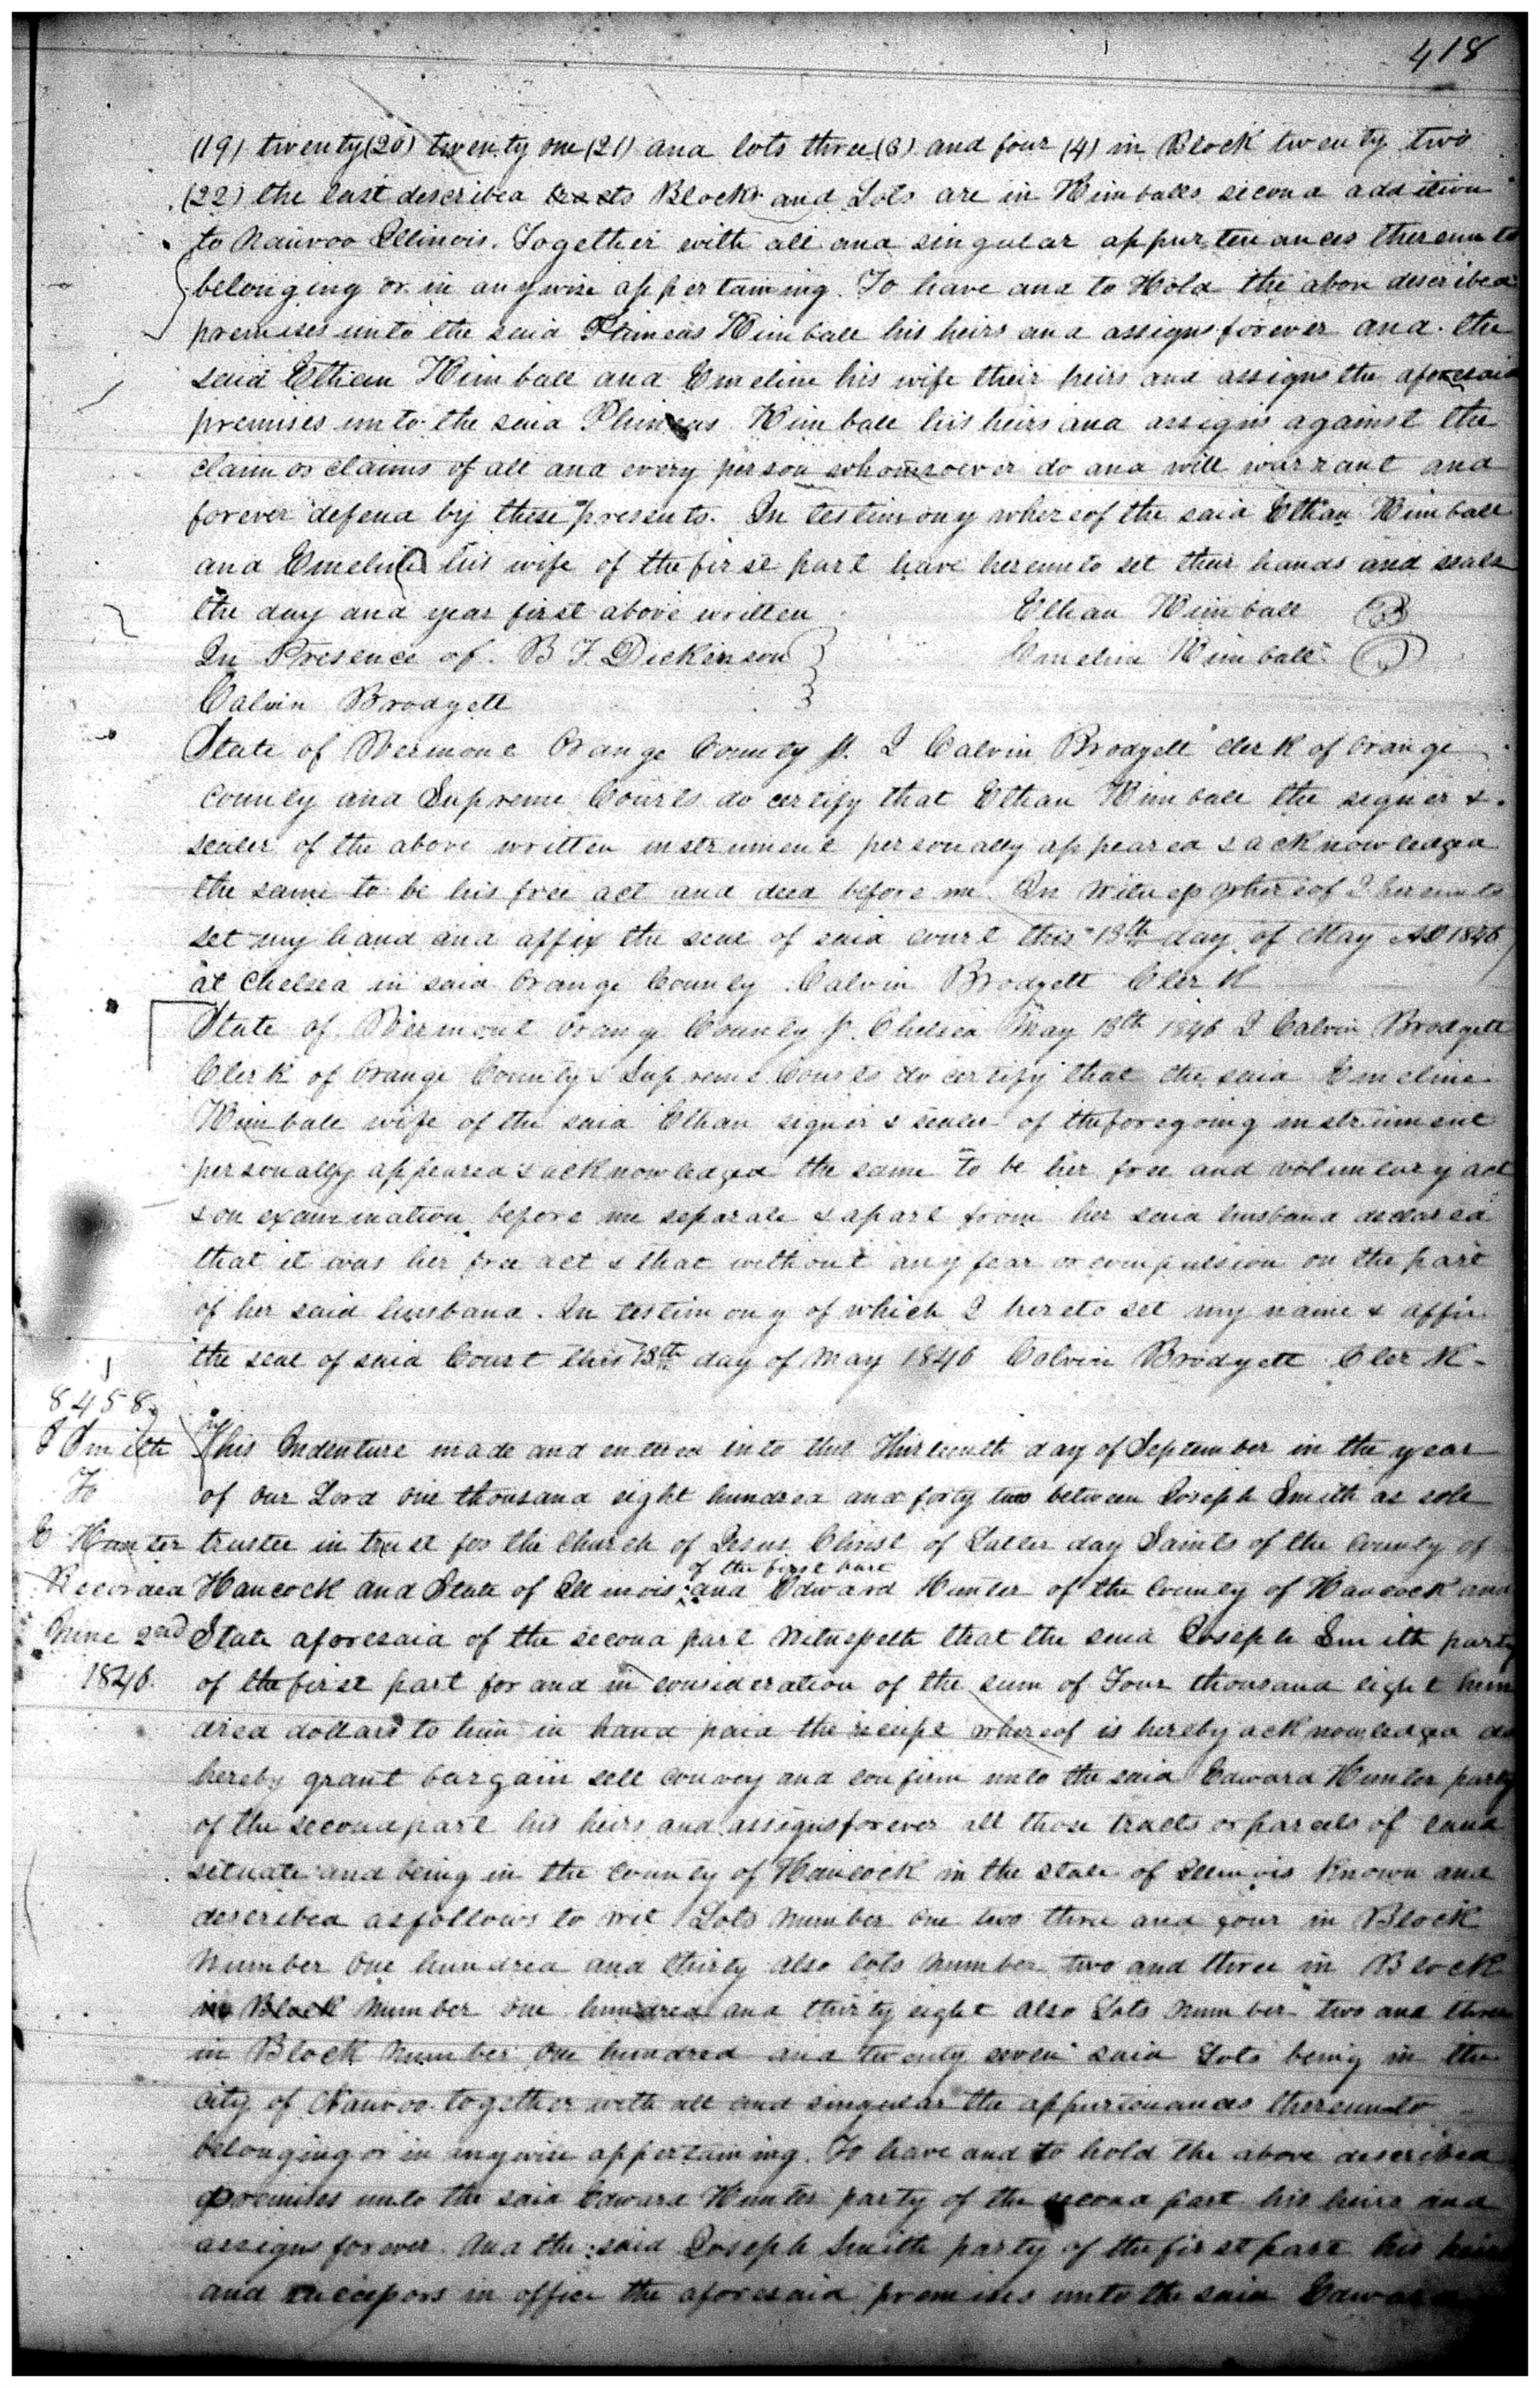 418
(19) twenty (20) twenty one (21) and lots three (3) and four (4) in Block twenty two
(22) the last described Blocks and Lots are in Kimballs second addition
to Nauvoo Illinois. Together with all and singular appurtenances thereunto
belonging or in anywise appertaining. To have and to Hold the above described
premises unto the said Phineas Kimball his heirs and assigns forever and the
said Ethan Kimball and Emeline his wife their heirs and assigns the aforesaid
premises unto the said Phineas Kimball his heirs and assigns against the
claim or claims of all and every person whomsoever do and will warrant and
forever defend by these presents. In testimony whereof the said Ethan Kimball
and Emeline his wife of the first part have hereunto set their hands and seals
the day and year first above written Ethan Kimball
In Presence of. B F. Dickinson Emeline Kimball
Calvin Brodgett
State of Vermont Orange County ss. I Calvin Brodgett clerk of Orange
County and Supreme Courts do certify that Ethan Kimball the signer &
sealer of the above written instrument personally appeared & acknowledged
the same to be his free act and deed before me In Witness whereof I hereunto
set my hand and affix the seal of said court this 13th day of May AD 1846
at Chelsea in said Orange County Calvin Brodgett Clerk
State of Vermont Orange County ss. Chelsea May 13th 1846 I Calvin Brodgett
Clerk of Orange County & Supreme Courts do certify that the said Emeline
Kimball wife of the said Ethan signer & sealer of the foregoing instrument
personally appeared & acknowledged the same to be her free and voluntary act
& on examination before me separate & apart from her said husband declared
that it was her free act & that without any fear or compulsion on the part
of her said husband. In testimony of which I hereto set my name & affix
the seal of said Court this 13th day of May 1846 Calvin Brodgett Clerk -
8458
J Smith
To
E Hunter
Recorded
June 2nd
1846.
This Indenture made and entered into this Thirteenth day of September in the year
of our Lord one thousand eight hundred and forty two between Joseph Smith as sole
trustee in trust for the Church of Jesus Christ of Latter day Saints of the County of
of the first part
Hancock and State of Illinois and Edward Hunter of the County of Hancock and
State aforesaid of the second part Witnesseth that the said Joseph Smith party
of the first part for and in consideration of the sum of Four thousand eight hun
dred dollars to him in hand paid the receipt whereof is hereby acknowledged do
hereby grant bargain sell convey and confirm unto the said Edward Hunter party
of the second part his heirs and assigns forever all those tracts or parcels of land
situate and being in the County of Hancock in the state of Illinois Known and
described as follows to wit Lots number one two three and four in Block
number one hundred and thirty also lots number two and three in Block
in Block number one hundred and thirty eight also Lots number two and three
in Block number one hundred and twenty seven said Lots being in the
city of Nauvoo together with all and singular the appurtenances thereunto
belonging or in anywise appertaining. To have and to hold the above described
premises unto the said Edward Hunter party of the second part his heirs and
assigns forever. And the said Joseph Smith party of the first part his heirs
and successors in office the aforesaid premises unto the said Edward